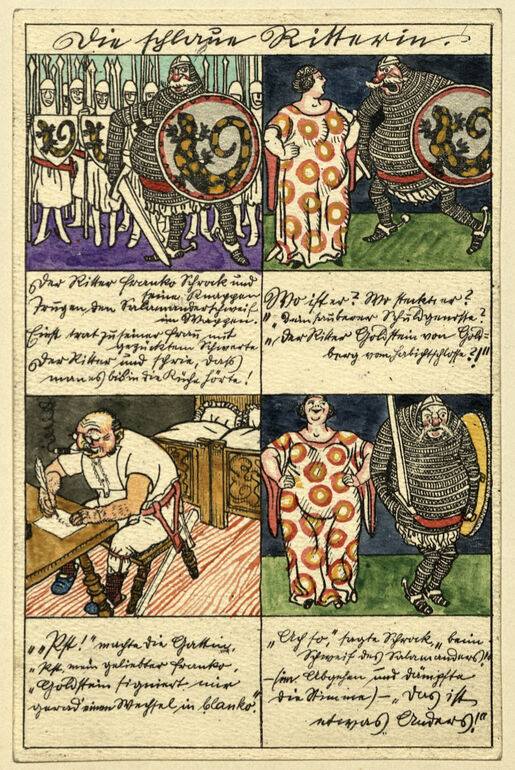 Die schlaue Ritterin.
Der Ritter Franko Schrock und
seine Knappen
Trugen den Salamanderschweif
im Wappen.
Einst trat zu seiner Frau mit
gezücktem Schwerte
Der Ritter und schrie, daß
man es bis in die Küche hörte!
Wo ist er? Wo steckt er?
„Dein sauberer Schuldgenosse?
„Der Ritter Goldstein von Gold-
berg vom Habichtschlosse?!"
„„Pst!" machte die Gattin,
„Pst, mein geliebter Franko,
„Goldstein signiert nur
gerad einen Wechsel in blanko."
„Ach so," sagte Schrock, „beim
Schweif des Salamanders!"
– (im Abgehen und dämpfte
die Stimme) – „Das ist
etwas Anders!"